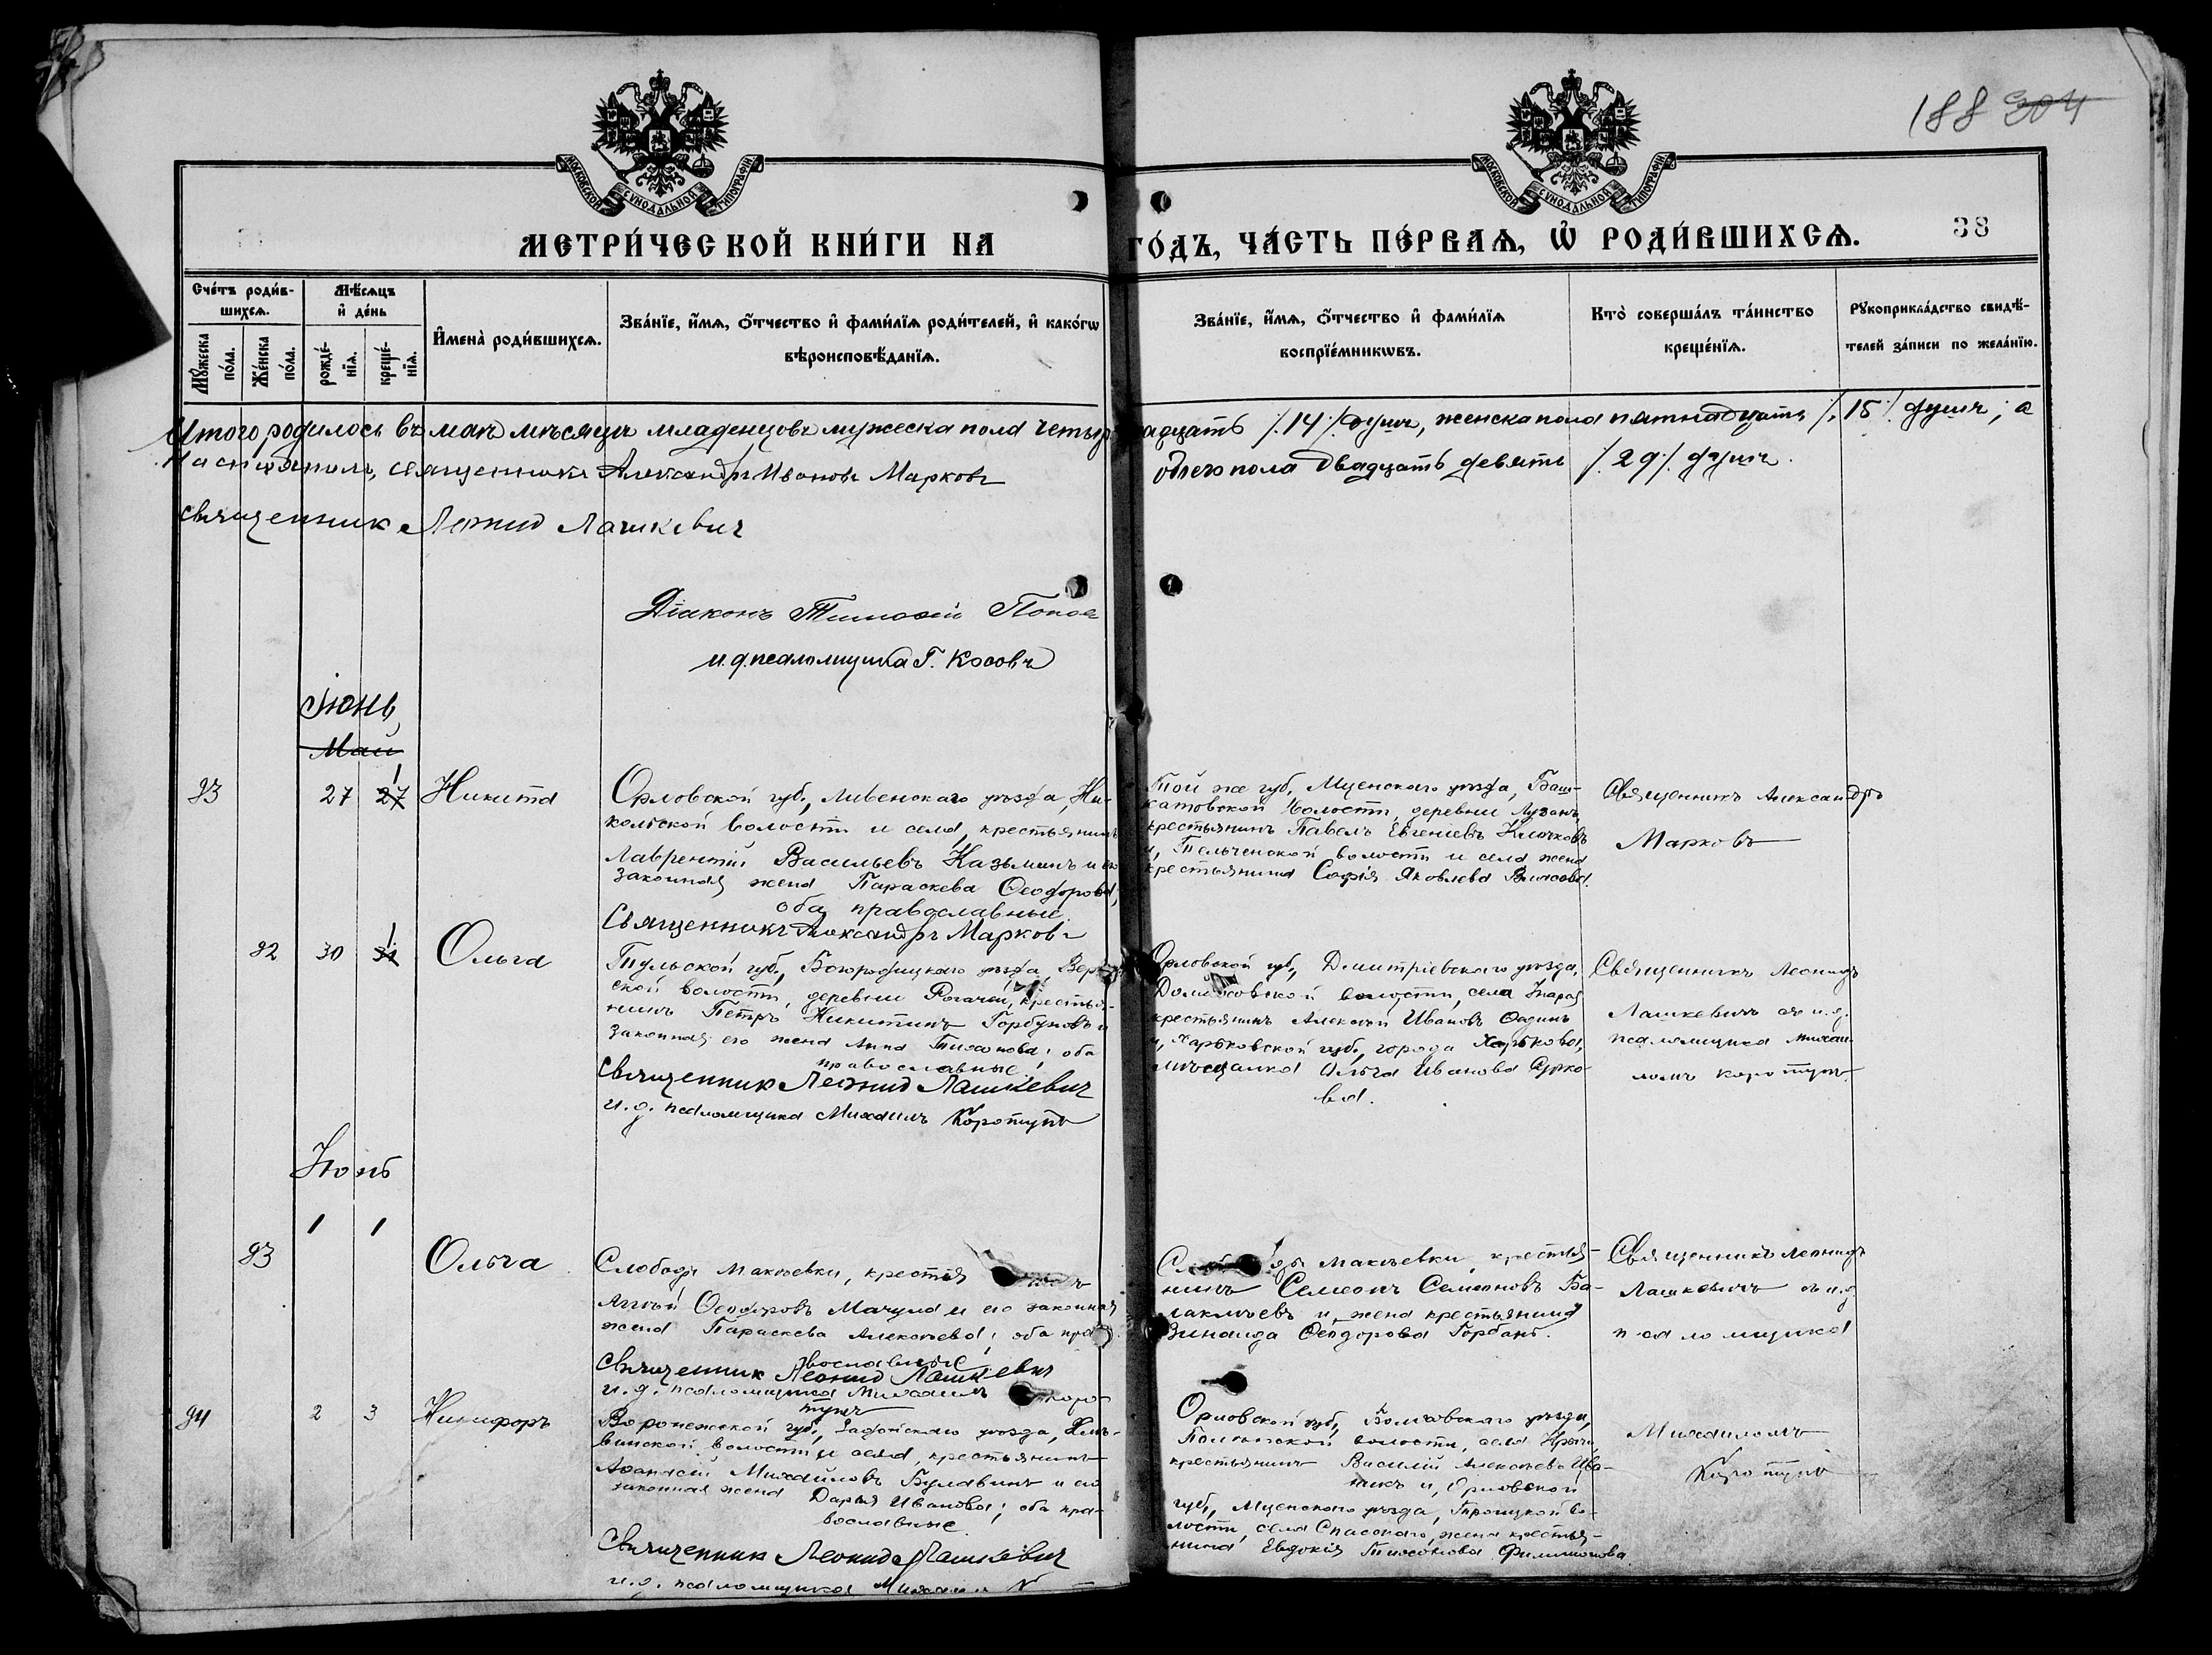 188 304
МОСКОВСКОЙ СѴНОДАЛЬНОЙ ТИПОГРАФІИ
МОСКОВСКОЙ СѴНОДАЛЬНОЙ ТИПОГРАФІИ
МЕТРИ́ЧЕСКОЙ КНИ́ГИ НА ГО́ДЪ, ЧА́СТЬ ПЕ́РВАѦ, Ѡ РОДИ́ВШИХСѦ. 38
Сче́тъ роди́вшихсѧ.
Мꙋ́жеска по́ла.
Же́нска по́ла.
Мѣ́сѧцъ и҆ де́нь
рожде́нїѧ.
креще́нїѧ.
И҆мена̀ роди́вшихсѧ.
Зва́нїе, и҆́мѧ, ѻ҆́тчество и҆ фами́лїѧ роди́телей, и҆ како́гѡ
вѣроисповѣ́данїѧ.
Зва́нїе, и҆́мѧ, ѻ҆́тчество и҆ фами́лїѧ
воспрїе́мникѡвъ.
Кто̀ соверша́лъ та́инство
креще́нїѧ.
Рꙋкоприкла́дство свидѣ́-
телей за́писи по жела́нїю.
Итого родилось въ маѣ мѣсяцѣ младенцовъ мужеска пола четыр надцать /.14./ душъ, женска пола пятнадцать /.15./ душъ; а
священникъ Александръ Ивановъ Марковъ
обоего пола двадцать девять /.29./ душъ.
Священник Леонид Лашкевич
Діаконъ Тимоѳей Попов
и.д. псаломщика Г. Косовъ
Іюнь
Май
83 27 27 1 Никита
Орловской губ., Ливенскаго уѣзда, Ни-
кольской волости и села, крестьянинъ
Лаврентій Васильевъ Казьминъ и его
законная жена Параскева Ѳеодорова,
оба православные.
Священникъ Александръ Марковъ
Той же губ., Мценскаго уѣзда, Баш-
катовской волости, деревни
крестьянинъ Павелъ Евгеніевъ Клочковъ
и, Тельченской волости и села жена
крестьянина Софія Яковлева Власова.
Священникъ Александръ
Марковъ
82 30 31 1 Ольга
Тульской губ., Богородицкаго уѣзда,
ской волости, деревни Рогачей, крестья-
нинъ Петръ Никитинъ Горбуновъ и
законная его жена Анна Тихонова; оба
православные.
Священник Леонид Лашкевич
и.д. псаломщика Михаилъ Коротунъ
Орловской губ., Дмитріевскаго уѣзда,
волости, села
крестьянинъ Алексѣй Ивановъ
и, Харьковской губ., города Харькова,
мѣщанка Ольга Иванова Сурко-
ва.
Священникъ Леонидъ
Лашкевичъ съ и.д.
псаломщика Михаи-
ломъ Коротунъ
Іюнь
1 1
83 Ольга
Слободы Макѣевки, крестья
Ѳеодоровъ Мачула и его законная
жена Параскева Алексѣева; оба пра-
вославные
Священник Леонид Лашкевич
и.д. псаломщика Михаилъ Коро-
тунъ
Макѣевки, крестья-
нинъ Симеонъ Семеновъ Ба-
лаклѣевъ и, жена крестьянина
Зинаида Ѳеодорова Горбань.
Священникъ Леонидъ
Лашкевичъ съ и.д.
псаломщика
84 2 3 Никифоръ
Воронежской губ., Задонскаго уѣзда, Хлѣ-
винской волости и села, крестьянинъ
Аѳанасій Михайловъ Булавинъ и его
законная жена Дарья Иванова; оба пра-
вославные
Священник Леонид Лашкевич
и.д. псаломщика Михаилъ
Орловской губ., Болховскаго уѣзда,
волости, села
крестьянинъ Василій Алексѣевъ Ива-
и, Орловской
губ., Мценскаго уѣзда, Троицкой во-
лости, села Спасскаго, жена крестья-
нина Евдокія Тихонова Филимонова.
Михаиломъ
Коротунъ